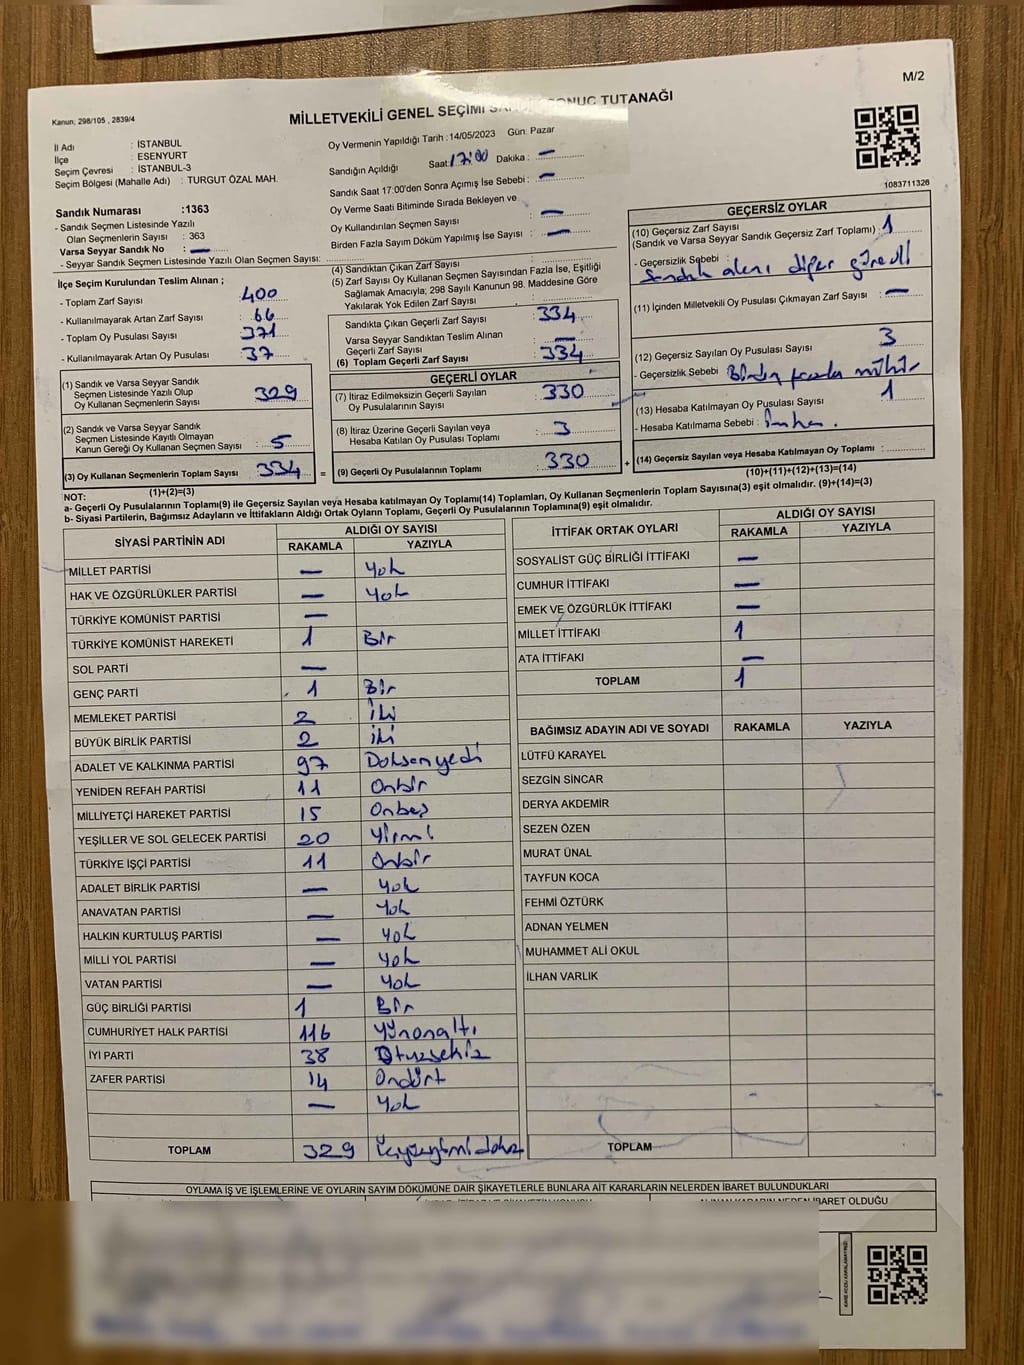 M/2
Kanun; 298/105 , 2839/4
MİLLETVEKİLİ GENEL SEÇİMİ SONUÇ TUTANAĞI
İl Adı : İSTANBUL
İlçe : ESENYURT
Seçim Çevresi : İSTANBUL-3
Seçim Bölgesi (Mahalle Adı) : TURGUT ÖZAL MAH.
Oy Vermenin Yapıldığı Tarih :14/05/2023 Gün. Pazar
Sandığın Açıldığı Saat: 17:00 Dakika : —
Sandık Saat 17:00'den Sonra Açımış İse Sebebi : —
Oy Verme Saati Bitiminde Sırada Bekleyen ve
Oy Kullandırılan Seçmen Sayısı —
Birden Fazla Sayım Döküm Yapılmış İse Sayısı : —
1083711326
Sandık Numarası :1363
- Sandık Seçmen Listesinde Yazılı
Olan Seçmenlerin Sayısı : 363
Varsa Seyyar Sandık No : —
- Seyyar Sandık Seçmen Listesinde Yazılı Olan Seçmen Sayısı:
İlçe Seçim Kurulundan Teslim Alınan ;
- Toplam Zarf Sayısı 400
- Kullanılmayarak Artan Zarf Sayısı : 66
- Toplam Oy Pusulası Sayısı 371
- Kullanılmayarak Artan Oy Pusulası 37
(1) Sandık ve Varsa Seyyar Sandık
Seçmen Listesinde Yazılı Olup
Oy Kullanan Seçmenlerin Sayısı : 329
(2) Sandık ve Varsa Seyyar Sandık
Seçmen Listesinde Kayıtlı Olmayan
Kanun Gereği Oy Kullanan Seçmen Sayısı : 5
(3) Oy Kullanan Seçmenlerin Toplam Sayısı 334 =
(1)+(2)=(3)
(4) Sandıktan Çıkan Zarf Sayısı
(5) Zarf Sayısı Oy Kullanan Seçmen Sayısından Fazla İse, Eşitliği
Sağlamak Amacıyla, 298 Sayılı Kanunun 98. Maddesine Göre
Yakılarak Yok Edilen Zarf Sayısı :
Sandıkta Çıkan Geçerli Zarf Sayısı : 334
Varsa Seyyar Sandıktan Teslim Alınan
Geçerli Zarf Sayısı : —
(6) Toplam Geçerli Zarf Sayısı : 334
GEÇERLİ OYLAR
(7) İtiraz Edilmeksizin Geçerli Sayılan
Oy Pusulalarının Sayısı : 330
(8) İtiraz Üzerine Geçerli Sayılan veya
Hesaba Katılan Oy Pusulası Toplamı : 3
(9) Geçerli Oy Pusulalarının Toplamı : 330 +
GEÇERSİZ OYLAR
(10) Geçersiz Zarf Sayısı
(Sandık ve Varsa Seyyar Sandık Geçersiz Zarf Toplamı) : 1
- Geçersizlik Sebebi :
Sandık alanı diğer görevli
(11) İçinden Milletvekili Oy Pusulası Çıkmayan Zarf Sayısı : —
(12) Geçersiz Sayılan Oy Pusulası Sayısı : 3
- Geçersizlik Sebebi : Birden fazla mühür
(13) Hesaba Katılmayan Oy Pusulası Sayısı : 1
- Hesaba Katılmama Sebebi : İmha.
(14) Geçersiz Sayılan veya Hesaba Katılmayan Oy Toplamı :
(10)+(11)+(12)+(13)=(14)
NOT:
a- Geçerli Oy Pusulalarının Toplamı(9) ile Geçersiz Sayılan veya Hesaba katılmayan Oy Toplamı(14) Toplamları, Oy Kullanan Seçmenlerin Toplam Sayısına(3) eşit olmalıdır. (9)+(14)=(3)
b- Siyasi Partilerin, Bağımsız Adayların ve İttifakların Aldığı Ortak Oyların Toplamı, Geçerli Oy Pusulalarının Toplamına(9) eşit olmalıdır.
SİYASİ PARTİNİN ADI ALDIĞI OY SAYISI
RAKAMLA YAZIYLA
MİLLET PARTİSİ — Yok
HAK VE ÖZGÜRLÜKLER PARTİSİ — Yok
TÜRKİYE KOMÜNİST PARTİSİ —
TÜRKİYE KOMÜNİST HAREKETİ 1 Bir
SOL PARTİ —
GENÇ PARTİ 1 Bir
MEMLEKET PARTİSİ 2 İki
BÜYÜK BİRLİK PARTİSİ 2 iki
ADALET VE KALKINMA PARTİSİ 97 Doksanyedi
YENİDEN REFAH PARTİSİ 11 Onbir
MİLLİYETÇİ HAREKET PARTİSİ 15 Onbeş
YEŞİLLER VE SOL GELECEK PARTİSİ 20 Yirmi
TÜRKİYE İŞÇİ PARTİSİ 11 Onbir
ADALET BİRLİK PARTİSİ — Yok
ANAVATAN PARTİSİ — Yok
HALKIN KURTULUŞ PARTİSİ — Yok
MİLLİ YOL PARTİSİ — Yok
VATAN PARTİSİ — Yok
GÜÇ BİRLİĞİ PARTİSİ 1 Bir
CUMHURİYET HALK PARTİSİ 116 Yüzonaltı
İYİ PARTİ 38 Otuzsekiz
ZAFER PARTİSİ 14 Ondört
— Yok
TOPLAM 329
İTTİFAK ORTAK OYLARI ALDIĞI OY SAYISI
RAKAMLA YAZIYLA
SOSYALİST GÜÇ BİRLİĞİ İTTİFAKI —
CUMHUR İTTİFAKI —
EMEK VE ÖZGÜRLÜK İTTİFAKI —
MİLLET İTTİFAKI 1
ATA İTTİFAKI —
TOPLAM 1
BAĞIMSIZ ADAYIN ADI VE SOYADI RAKAMLA YAZIYLA
LÜTFÜ KARAYEL
SEZGİN SİNCAR
DERYA AKDEMİR
SEZEN ÖZEN
MURAT ÜNAL
TAYFUN KOCA
FEHMİ ÖZTÜRK
ADNAN YELMEN
MUHAMMET ALİ OKUL
İLHAN VARLIK
TOPLAM
OYLAMA İŞ VE İŞLEMLERİNE VE OYLARIN SAYIM DÖKÜMÜNE DAİR ŞİKAYETLERLE BUNLARA AİT KARARLARIN NELERDEN İBARET BULUNDUKLARI
ALINAN KARARIN NEDEN İBARET OLDUĞU